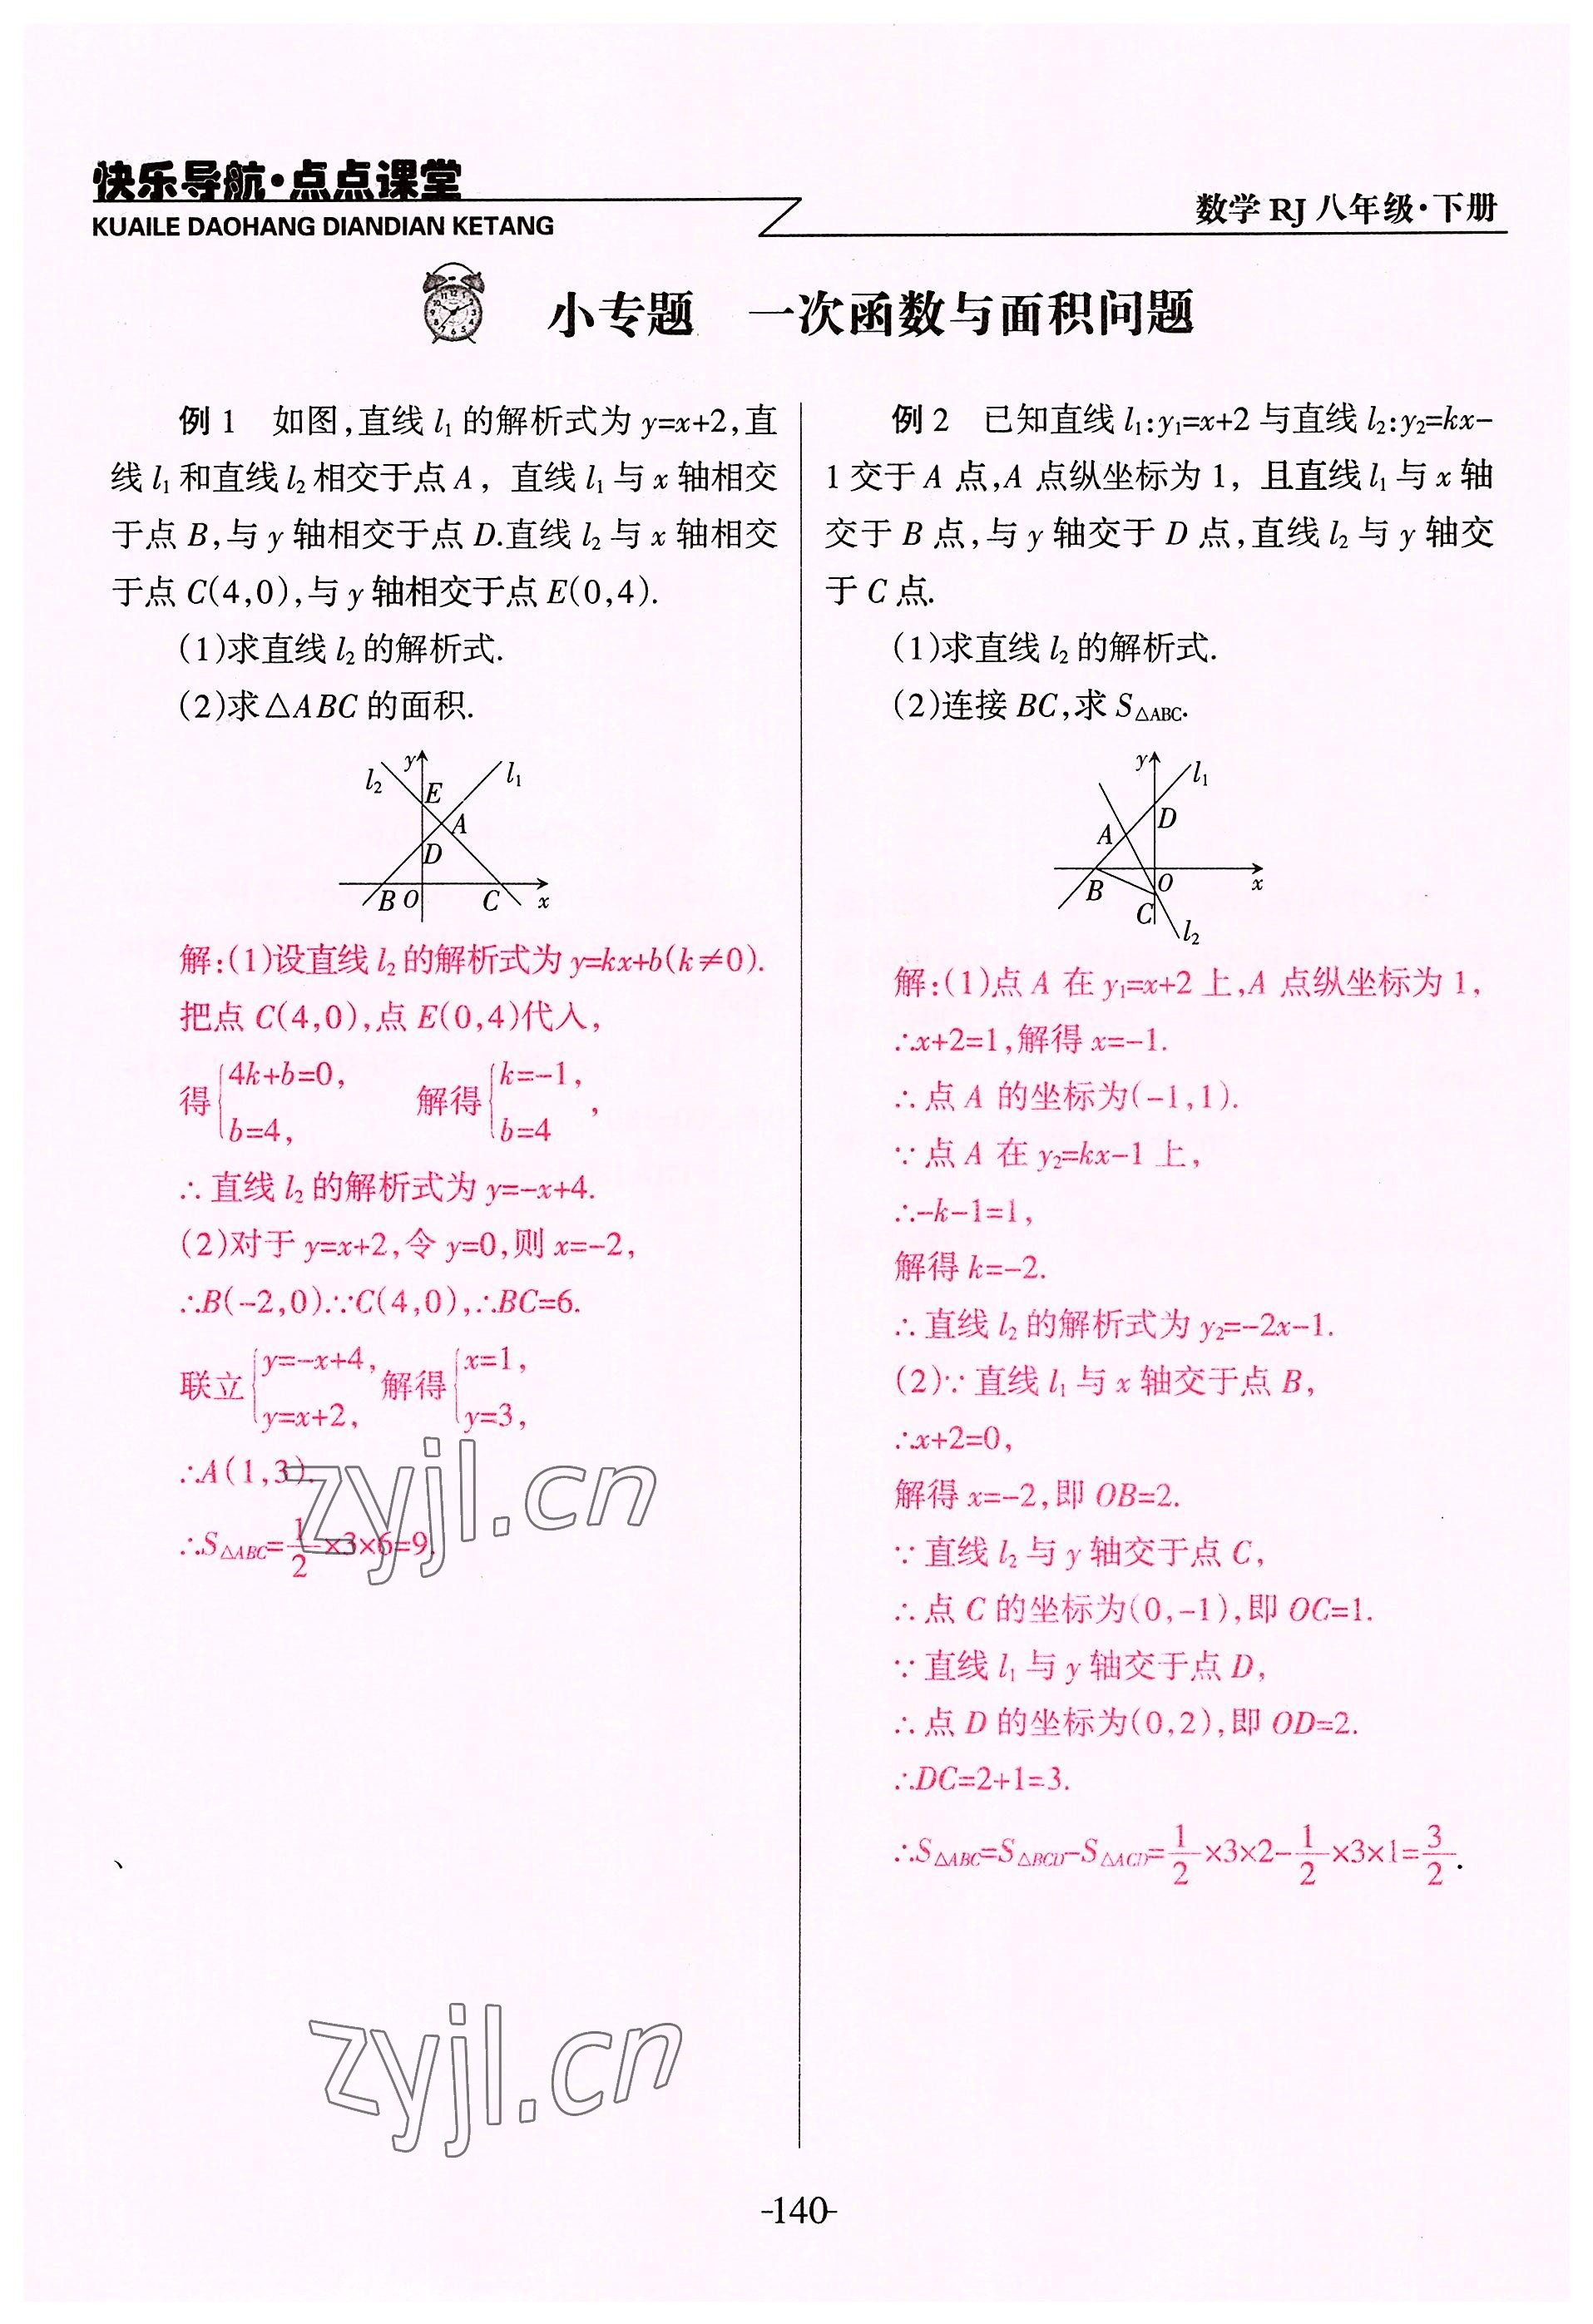 快乐导航·点点课堂
KUAILE DAOHANG DIANDIAN KETANG
数学 RJ 八年级·下册
小专题 一次函数与面积问题
例 1 如图,直线 l₁ 的解析式为 y=x+2,直
线 l₁ 和直线 l₂ 相交于点 A, 直线 l₁ 与 x 轴相交
于点 B,与 y 轴相交于点 D.直线 l₂ 与 x 轴相交
于点 C(4,0),与 y 轴相交于点 E(0,4).
(1)求直线 l₂ 的解析式.
(2)求△ABC 的面积.
l₂ y l₁
E
A
D
B O C x
解:(1)设直线 l₂ 的解析式为 y=kx+b(k≠0).
把点 C(4,0),点 E(0,4)代入,
得{4k+b=0, b=4, 解得{k=-1, b=4 ,
∴直线 l₂ 的解析式为 y=-x+4.
(2)对于 y=x+2,令 y=0,则 x=-2,
∴B(-2,0).∵C(4,0),∴BC=6.
联立{y=-x+4, y=x+2, 解得{x=1, y=3,
∴A(1,3).
∴S△ABC=1/2×3×6=9.
zyjl.cn
zyjl.cn
例 2 已知直线 l₁:y₁=x+2 与直线 l₂:y₂=kx-
1 交于 A 点,A 点纵坐标为 1, 且直线 l₁ 与 x 轴
交于 B 点,与 y 轴交于 D 点,直线 l₂ 与 y 轴交
于 C 点.
(1)求直线 l₂ 的解析式.
(2)连接 BC,求 S△ABC.
y l₁
D
A
B O x
C
l₂
解:(1)点 A 在 y₁=x+2 上,A 点纵坐标为 1,
∴x+2=1,解得 x=-1.
∴点 A 的坐标为(-1,1).
∵点 A 在 y₂=kx-1 上,
∴-k-1=1,
解得 k=-2.
∴直线 l₂ 的解析式为 y₂=-2x-1.
(2)∵直线 l₁ 与 x 轴交于点 B,
∴x+2=0,
解得 x=-2,即 OB=2.
∵直线 l₂ 与 y 轴交于点 C,
∴点 C 的坐标为(0,-1),即 OC=1.
∵直线 l₁ 与 y 轴交于点 D,
∴点 D 的坐标为(0,2),即 OD=2.
∴DC=2+1=3.
∴S△ABC=S△BCD-S△ACD=1/2×3×2-1/2×3×1=3/2.
-140-